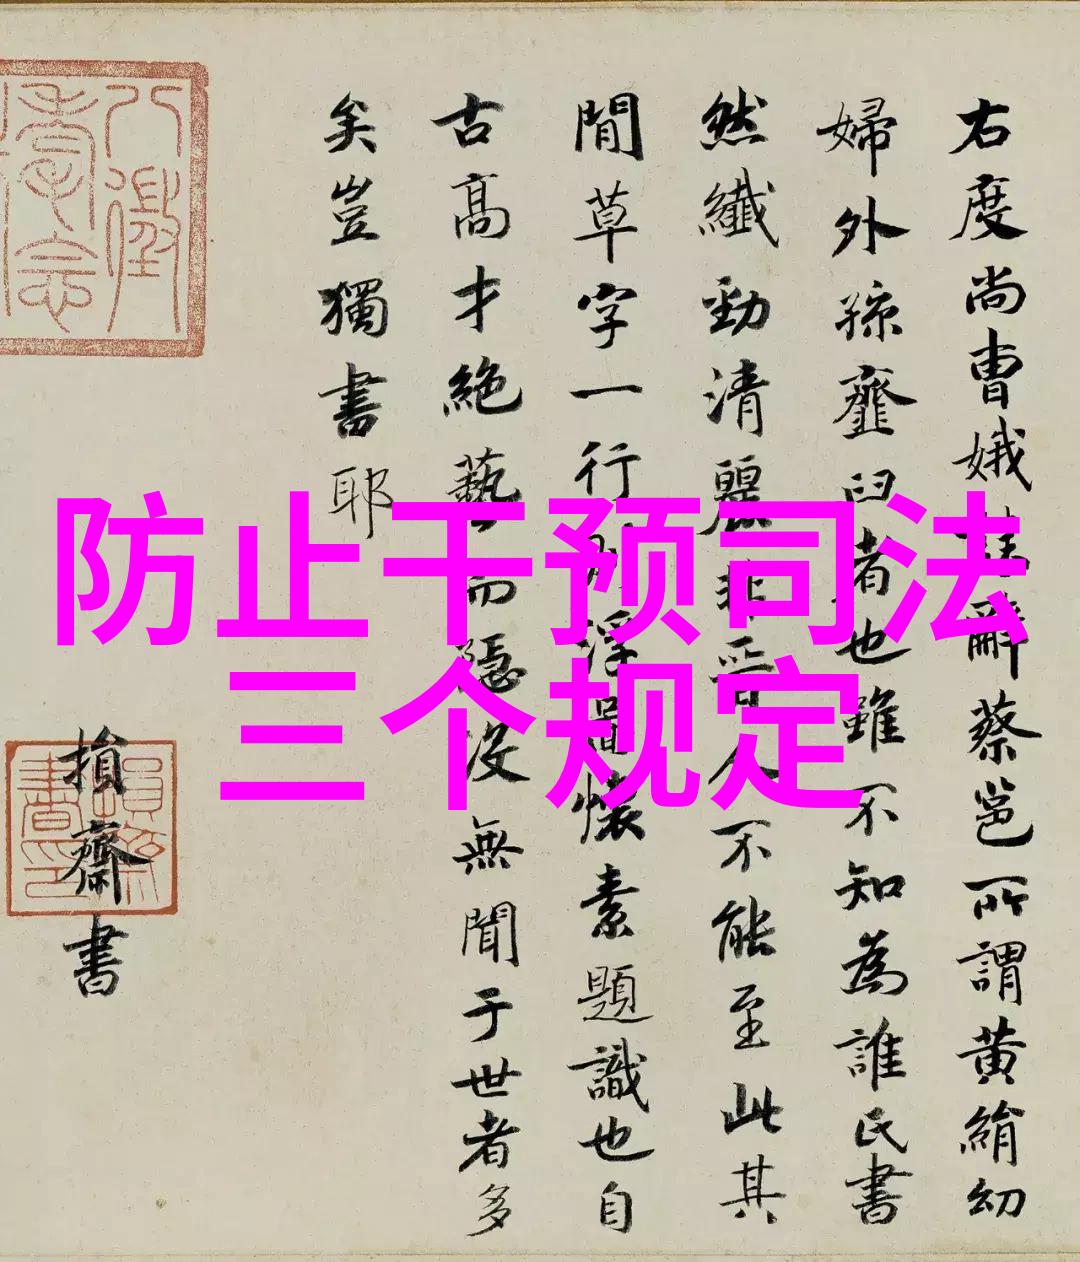 右度尚曹娥
辭蔡邕所謂黄絹幼
婦外孫虀臼者也雖不知為誰氏書
然纖勁清麗非晉人不能至此其
間草字一行
浮
懷素題識也自
古高才絶藝而隱没無聞于世者多
矣豈獨書耶
損齋書
防止干预司法
三个规定